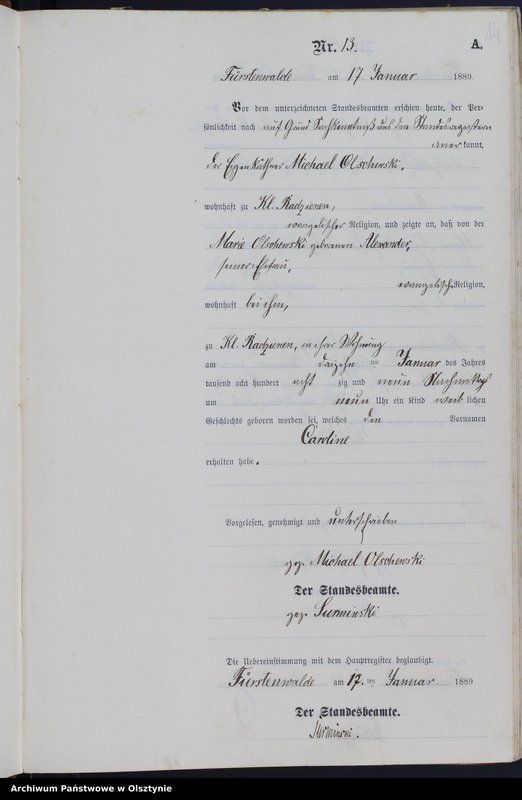 14
Nr. 13.
A.
Fürstenwalde am 17 Januar 1889.
Vor dem unterzeichneten Standesbeamten erschien heute, der Per-
sönlichkeit nach auf Grund Sachkenntniß und den Standesregistern
anerkannt,
der Eigenkäthner Michael Olschewski,
wohnhaft zu Kl. Radzienen,
evangelischer Religion, und zeigte an, daß von der
Marie Olschenski geborenen Alexander,
seiner Ehefrau,
evangelische Religion,
wohnhaft bei ihm,
zu Kl. Radzienen, in ihrer Wohnung
am dreizehn ten Januar des Jahres
tausend acht hundert acht zig und neun Nachmittags
um neun Uhr ein Kind weib lichen
Geschlechts geboren worden sei, welches den Vornamen
Caroline
erhalten habe.
Vorgelesen, genehmigt und unterschrieben
gez. Michael Olschewski
Der Standesbeamte.
gez. Surminski
Die Uebereinstimmung mit dem Hauptregister beglaubigt.
Fürstenwalde am 17. ten Januar. 1889
Der Standesbeamte.
Surminski.
Archiwum Państwowe w Olsztynie